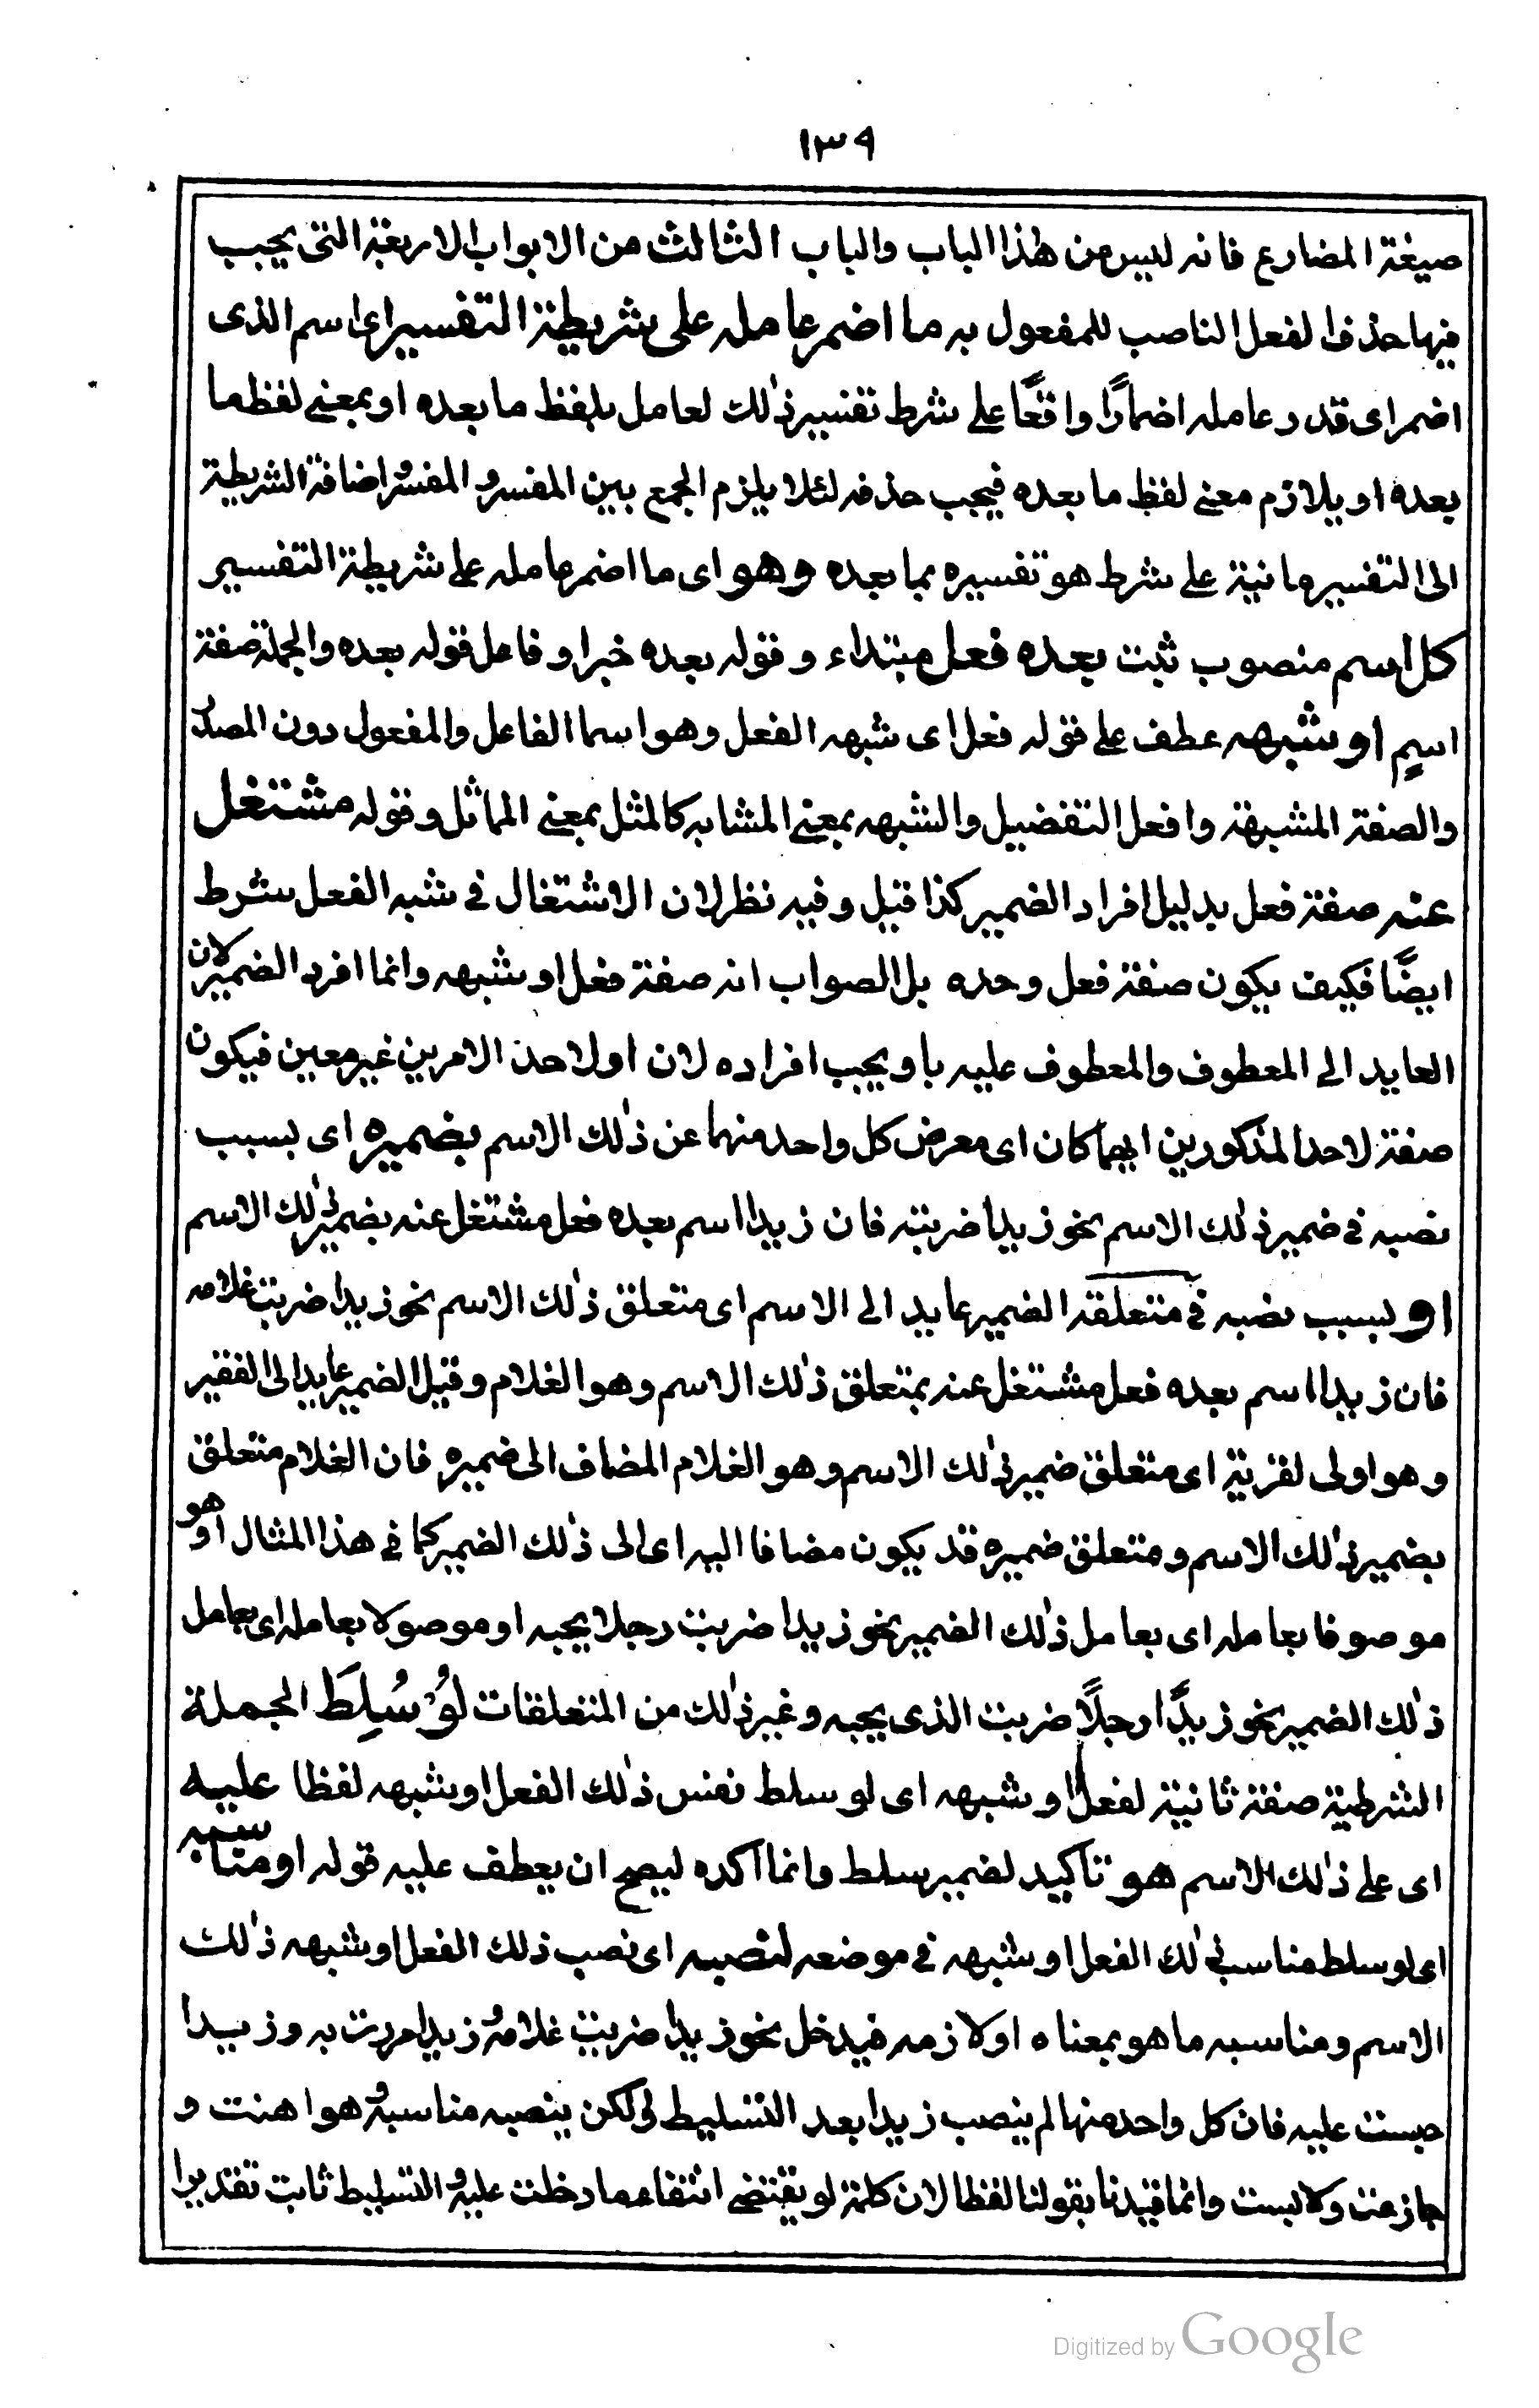 ١٣٩
صيغة المضارع فانه ليس من هذا الباب والباب الثالث من الابواب الاربعة التى يجب
فيها حذف الفعل الناصب للمفعول به ما اضمر عامله على شريطة التفسير اى اسم الذى
اضمر اى قدر عامله اضمارًا واقعًا على شرط تفسير ذلك لعامل بلفظ ما بعده او بمعنى لفظ ما
بعده او يلازم معنى لفظ ما بعده فيجب حذفه لئلا يلزم الجمع بين المفسر و المفسر و اضافة الشريطة
الى التفسير مانية على شرط هو تفسيره بما بعده وهو اى ما اضمر عامله على شريطة التفسير
كل اسم منصوب ثبت بعده فعل مبتداء وقوله بعده خبر او فاعل قوله بعده والجملة صفة
اسم او شبهه عطف على قوله فعل اى شبهه الفعل وهو اسما الفاعل والمفعول دون المصدر
والصفة المشبهة وافعل التفضيل والشبهه بمعنى المشابه كالمثل بمعنى المماثل وقوله مشتغل
عنه صفة فعل بدليل افراد الضمير كذا قيل وفيه نظر لان الاشتغال فى شبه الفعل شرط
ايضًا فكيف يكون صفة فعل وحده بل الصواب انه صفة فعل او شبهه وانما افرد الضمير لان
العايد الى المعطوف والمعطوف عليه باو يجب افراده لان او لاحد الامرين غير معين فيكون
صفة لاحد المذكورين ايهما كان اى معرض كل واحد منهما عن ذلك الاسم بضميره اى بسبب
نصبه فى ضمير ذلك الاسم نحو زيدا ضربته فان زيدا اسم بعده فعل مشتغل عنه بضمير ذلك الاسم
او بسبب نصبه فى متعلقه الضمير عايد الى الاسم اى متعلق ذلك الاسم نحو زيدا ضربت غلامه
فان زيدا اسم بعده فعل مشتغل عنه بمتعلق ذلك الاسم وهو الغلام وقيل الضمير عايد الى الفقير
وهو اولى لقربة اى متعلق ضمير ذلك الاسم وهو الغلام المضاف الى ضميره فان الغلام متعلق
بضمير ذلك الاسم و متعلق ضميره قد يكون مضافا اليه اى الى ذلك الضمير كما فى هذا المثال او هو
موصوفا بعامله اى بعامل ذلك الضمير نحو زيدا ضربت رجلا يحبه او موصولا بعامله اى بعامل
ذلك الضمير نحو زيدًا رجلًا ضربت الذى يحبه وغير ذلك من المتعلقات لَوْ سُلِطَ الجملة
الشرطية صفة ثانية لفعل او شبهه اى لو سلط نفس ذلك الفعل او شبهه لفظا عليه
اى على ذلك الاسم هو تاكيد لضمير سلط وانما اكده ليصح ان يعطف عليه قوله او مناسبه
اى لو سلط مناسب ذلك الفعل او شبهه فى موضعه لنصبه اى نصب ذلك الفعل او شبهه ذلك
الاسم ومناسبه ما هو بمعناه او لازمه فيدخل نحو زيدا ضربت غلامه و زيدا مررت به و زيدا
حبست عليه فان كل واحد منها لم ينصب زيدا بعد التسليط ولكن ينصبه مناسبه و هو اهنت و
جازعت ولابست وانما قيدنا بقولنا لفظا لان كلمة لو يقتضى انتفاء ما دخلت عليه و التسليط ثابت تقديرا
Digitized by Google